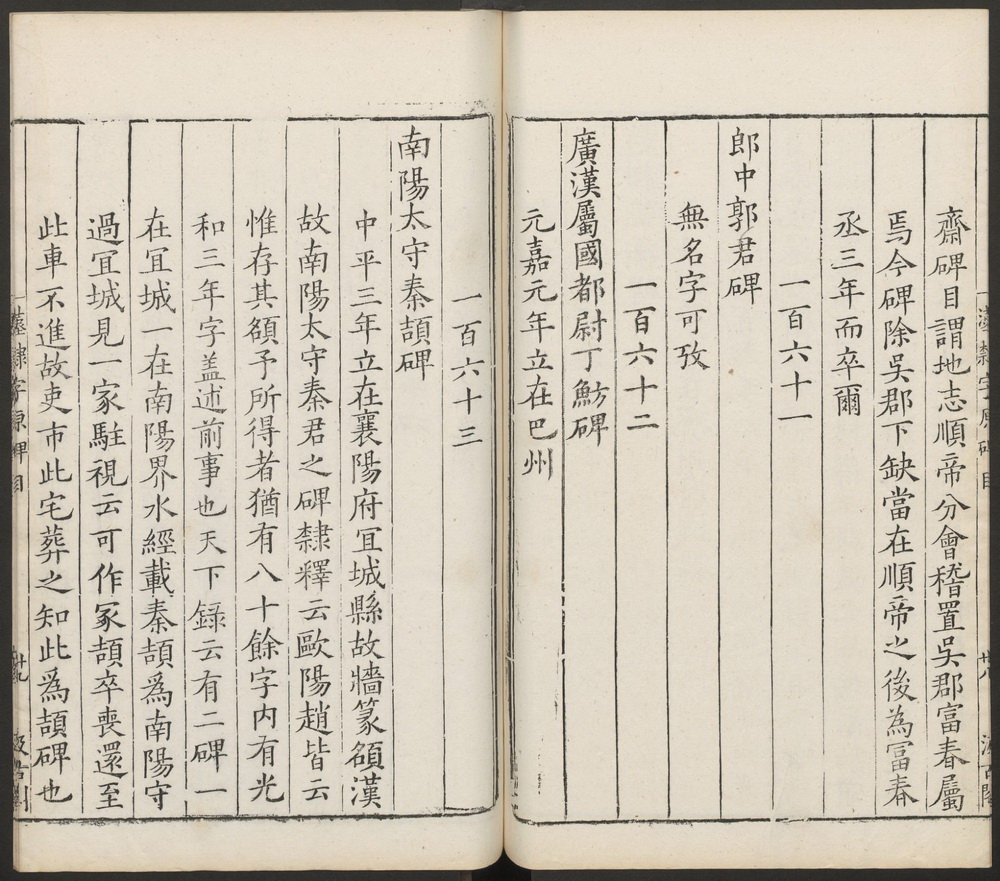 齋碑目謂地志順帝分會稽置吳郡富春屬
焉今碑除吳郡下缺當在順帝之後為冨春
丞三年而卒爾
一百六十一
郎中郭君碑
無名字可攷
一百六十二
廣漢屬國都尉丁魴碑
元嘉元年立在巴州
一百六十三
南陽太守秦頡碑
中平三年立在襄陽府宜城縣故牆篆額漢
故南陽太守秦君之碑隸釋云歐陽趙皆云
惟存其額予所得者猶有八十餘字内有光
和三年字盖述前事也天下錄云有二碑一
在宜城一在南陽界水經載秦頡爲南陽守
過宜城見一家駐視云可作冢頡卒喪還至
此車不進故吏市此宅葬之知此爲頡碑也